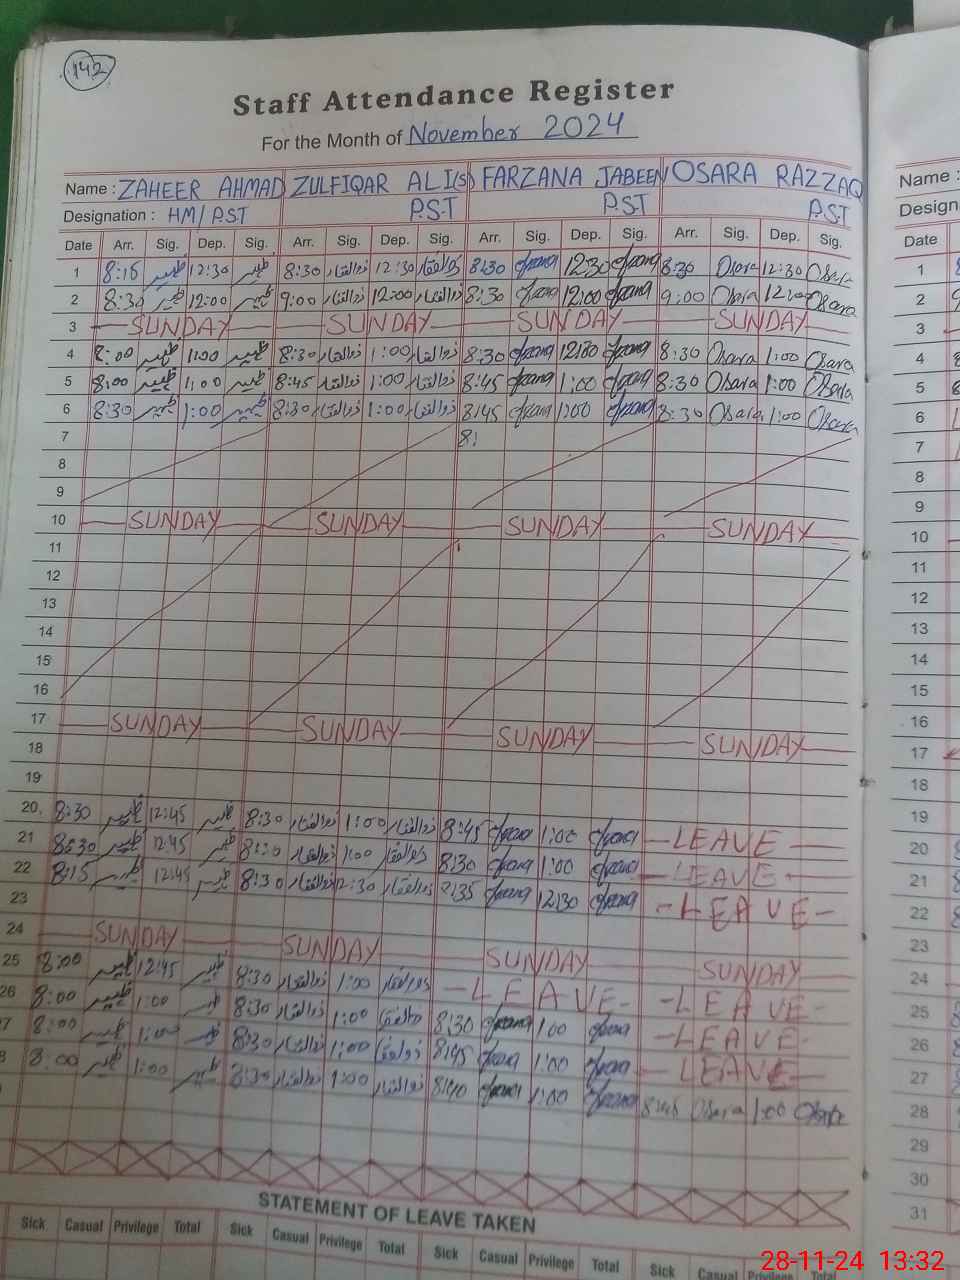 142
Staff Attendance Register
For the Month of November 2024
Name : ZAHEER AHMAD ZULFIQAR ALI(S) FARZANA JABEEN OSARA RAZZAQ Name :
Designation : HM/P.ST P.S.T P.S.T P.S.T Design
Date Arr. Sig. Dep. Sig. Arr. Sig. Dep. Sig. Arr. Sig. Dep. Sig. Arr. Sig. Dep. Sig. Date
1 8:15 ظہیر 12:30 ظہیر 8:30 ذوالفقار 12:30 ذوالفقار 8:30 12:30 8:30 Osara 12:30 Osara 1
2 8:30 ظہیر 12:00 ظہیر 9:00 ذوالفقار 12:00 ذوالفقار 8:30 12:00 9:00 Osara 12:00 Osara 2
3 SUNDAY SUNDAY SUNDAY SUNDAY 3
4 8:00 ظہیر 1:00 ظہیر 8:30 ذوالفقار 1:00 ذوالفقار 8:30 12:30 8:30 Osara 1:00 Osara 4
5 8:00 ظہیر 1:00 ظہیر 8:45 ذوالفقار 1:00 ذوالفقار 8:45 1:00 8:30 Osara 1:00 Osara 5
6 8:30 ظہیر 1:00 ظہیر 8:30 ذوالفقار 1:00 ذوالفقار 8:45 1:00 8:30 Osara 1:00 Osara 6
7 8: 7
8 8
9 9
10 SUNDAY SUNDAY SUNDAY SUNDAY 10
11 11
12 12
13 13
14 14
15 15
16 16
17 SUNDAY SUNDAY SUNDAY SUNDAY 17
18 18
19 19
20 8:30 ظہیر 12:45 ظہیر 8:30 ذوالفقار 1:00 ذوالفقار 8:45 1:00 LEAVE 20
21 8:30 ظہیر 12:45 ظہیر ذوالفقار 1:00 ذوالفقار 8:30 1:00 LEAVE 21
22 8:15 ظہیر 12:45 ظہیر 8:30 ذوالفقار 12:30 ذوالفقار 8:35 12:30 LEAVE 22
23 23
24 SUNDAY SUNDAY SUNDAY SUNDAY 24
25 8:00 ظہیر 12:45 ظہیر 8:30 ذوالفقار 1:00 ذوالفقار LEAVE LEAVE 25
26 8:00 ظہیر 1:00 ظہیر 8:30 ذوالفقار 1:00 ذوالفقار 8:30 1:00 LEAVE 26
7 8:00 ظہیر 1:00 ظہیر 8:30 ذوالفقار 1:00 ذوالفقار 8:45 1:00 LEAVE 27
8 8:00 ظہیر 1:00 ظہیر 8:30 ذوالفقار 1:00 ذوالفقار 8:40 1:00 8:45 Osara 1:00 Osara 28
29
30
31
STATEMENT OF LEAVE TAKEN
Sick Casual Privilege Total Sick Casual Privilege Total Sick Casual Privilege Total Sick Casual Privilege Total
28-11-24 13:32